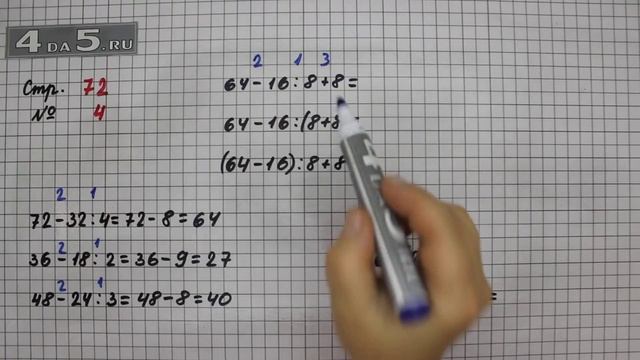 4DA5.RU
Стр. 72
№ 4
2 1 3
64-16:8+8=
64-16:(8+8
(64-16):8+8
2 1
72-32:4=72-8=64
2 1
36-18:2=36-9=27
2 1
48-24:3=48-8=40
=